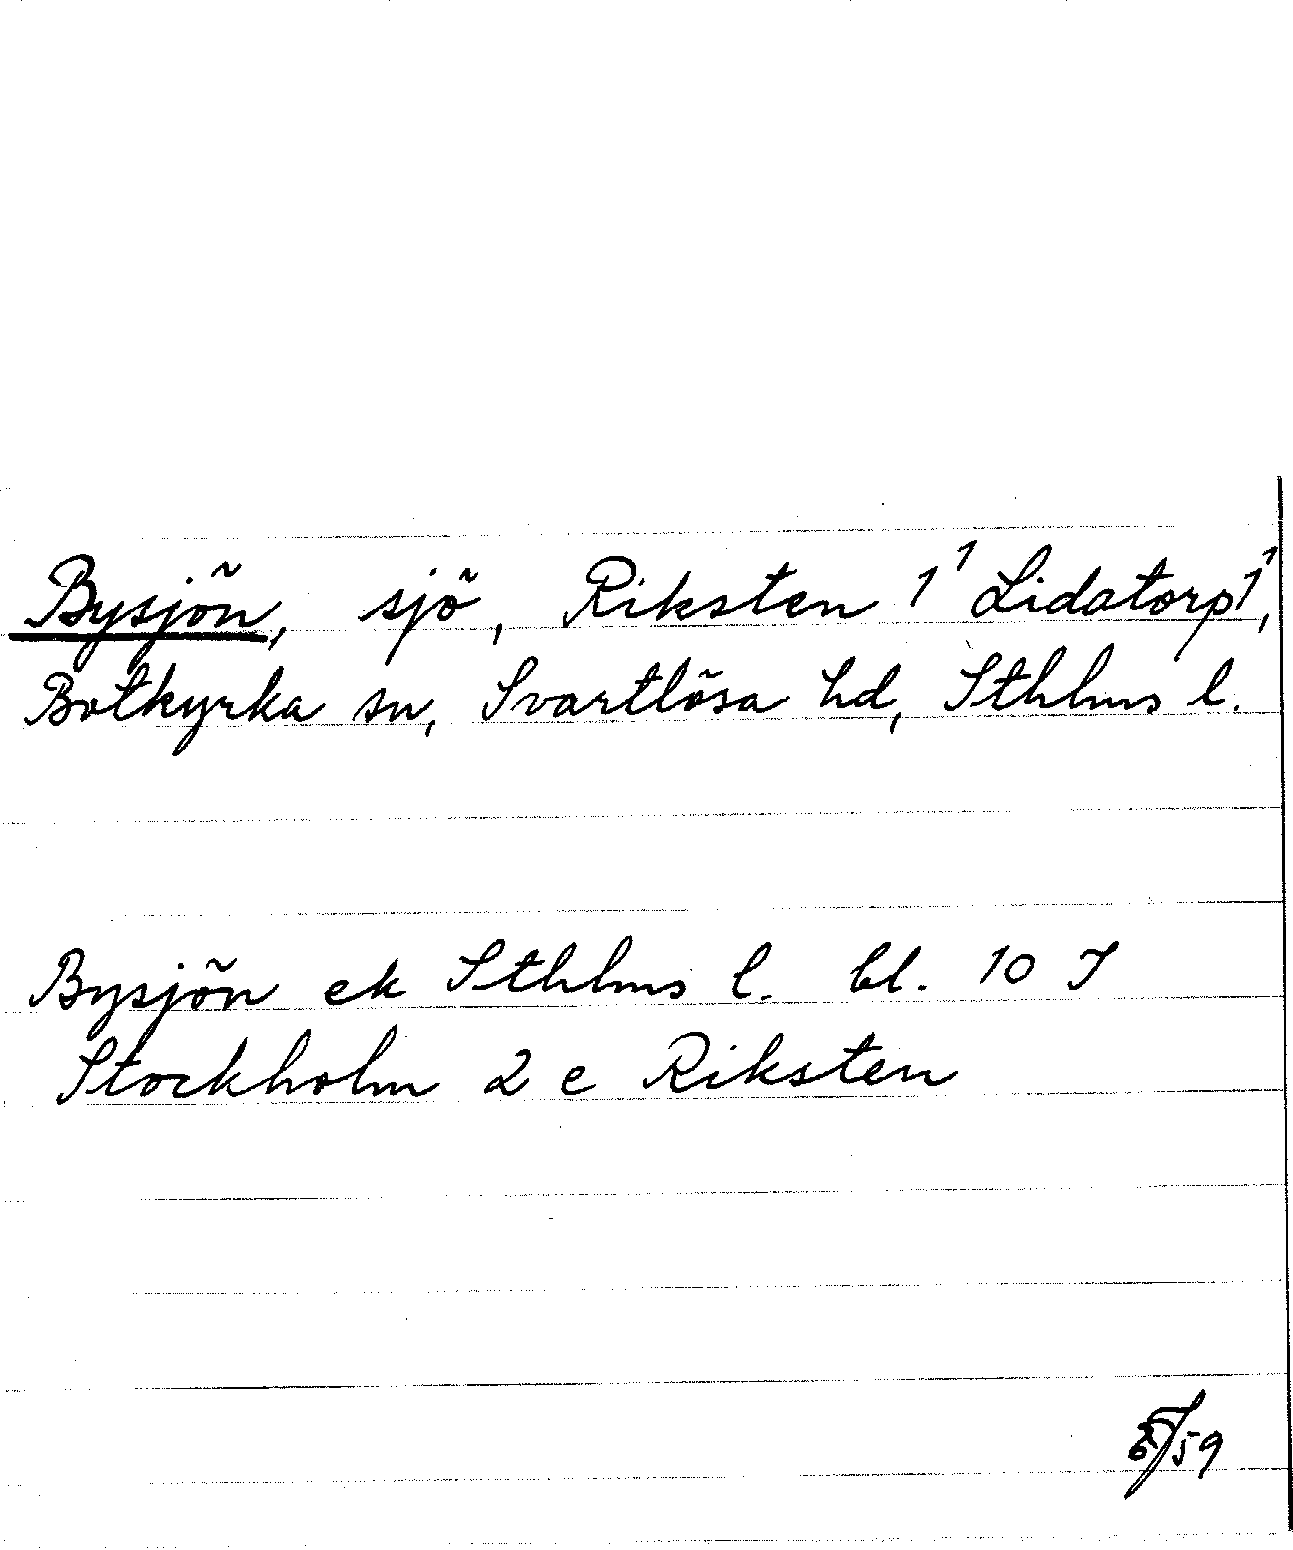 Bysjön, sjö, Riksten 1¹ Lidatorp 1¹,
Botkyrka sn, Svartlösa hd, Sthlms l.
Bysjön ek Sthlms l. bl. 10 I
Stockholm 2 e Riksten
/59